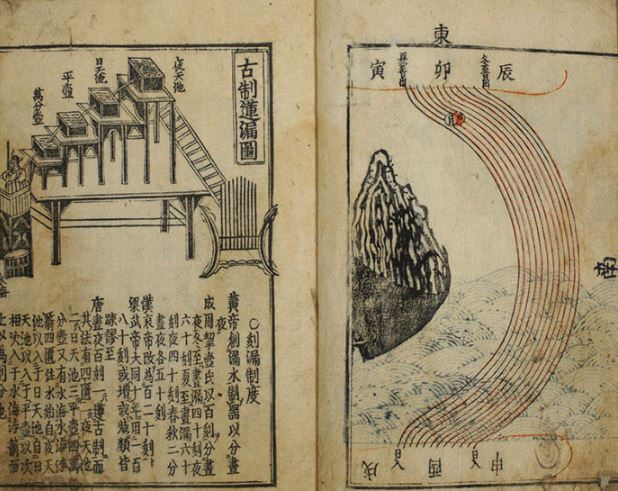 東
辰
卯
寅
南
申
酉
戌
古制蓮漏圖
夜天池
日天池
平壺
萬分壺
○刻漏制度
黃帝創漏水制器以分晝
夜
成周挈壺氏以百刻分晝
夜冬至晝漏四十刻夜
六十刻夏至晝漏六十
刻夜四十刻春秋二分
晝夜各五十刻
漢哀帝改為百二十刻
梁武帝大同十年用一百
八十刻或增或減類皆
疎謬至
唐晝夜百刻一遵古制而
其法有四匱一夜天池
二日天池三平壺四萬
分壺又有水海水海浮
箭四匱注水始自夜天
池以入于日天池自日
天池以入于平壺以次
相注入于水海浮箭而
上以為刻分也